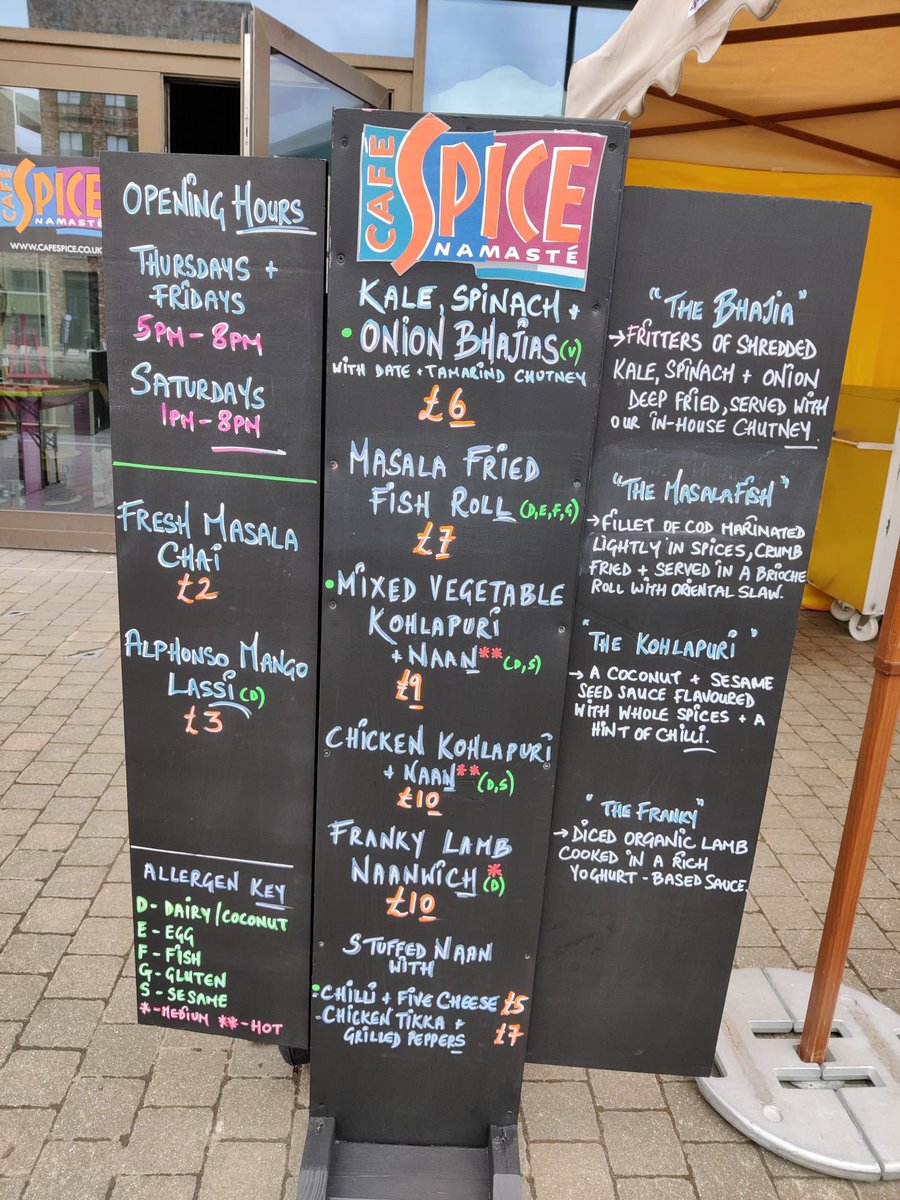 CAFE
SPICE
NAMASTÉ
WWW.CAFESPICE.CO.UK
OPENING HOURS
THURSDAYS +
FRIDAYS
5PM - 8PM
SATURDAYS
1PM - 8PM
FRESH MASALA
CHAI
£2
ALPHONSO MANGO
LASSI (D)
£3
ALLERGEN KEY
D - DAIRY/COCONUT
E - EGG
F - FISH
G - GLUTEN
S - SESAME
* - MEDIUM ** - HOT
CAFE
SPICE
NAMASTÉ
KALE, SPINACH +
• ONION BHAJIAS (V)
WITH DATE + TAMARIND CHUTNEY
£6
MASALA FRIED
FISH ROLL (D,E,F,G)
£7
• MIXED VEGETABLE
KOHLAPURI
+ NAAN ** (D,S)
£9
CHICKEN KOHLAPURI
+ NAAN ** (D,S)
£10
FRANKY LAMB
NAANWICH * (D)
£10
STUFFED NAAN
WITH
• CHILLI + FIVE CHEESE £5
- CHICKEN TIKKA +
GRILLED PEPPERS £7
"THE BHAJIA"
→ FRITTERS OF SHREDDED
KALE, SPINACH + ONION
DEEP FRIED, SERVED WITH
OUR IN-HOUSE CHUTNEY.
"THE MASALAFISH"
→ FILLET OF COD MARINATED
LIGHTLY IN SPICES, CRUMB
FRIED + SERVED IN A BRIOCHE
ROLL WITH ORIENTAL SLAW.
"THE KOHLAPURI"
→ A COCONUT + SESAME
SEED SAUCE FLAVOURED
WITH WHOLE SPICES + A
HINT OF CHILLI.
"THE FRANKY"
→ DICED ORGANIC LAMB
COOKED IN A RICH
YOGHURT - BASED SAUCE.